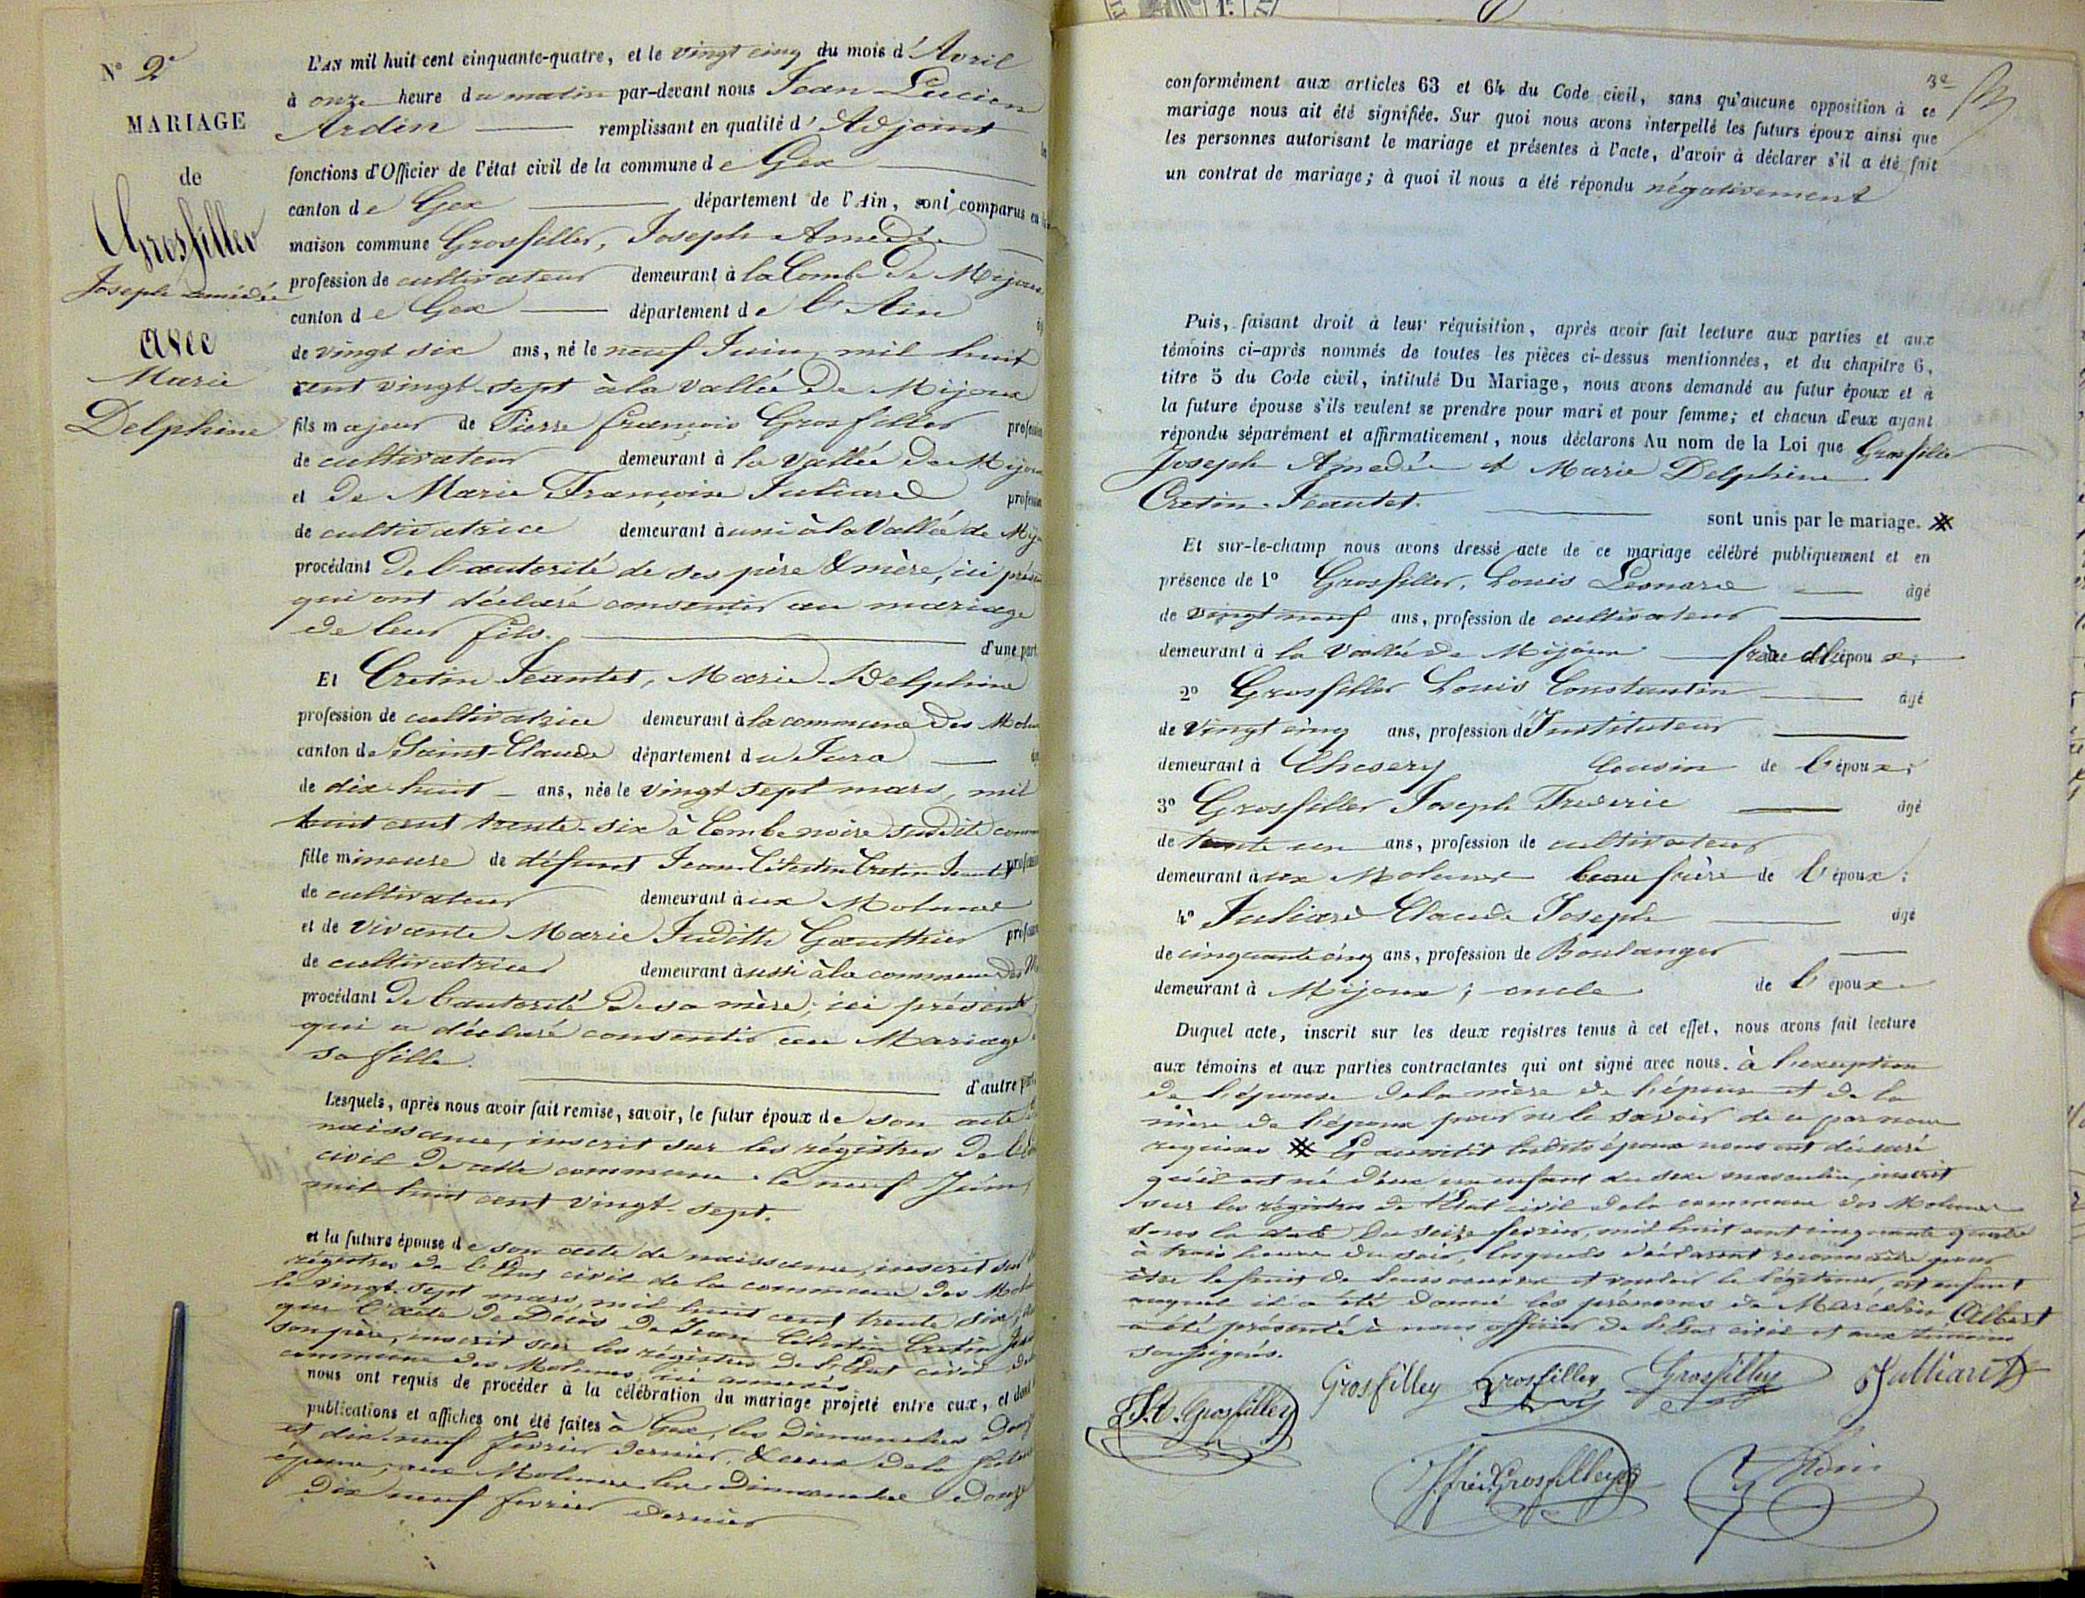 N° 2e
MARIAGE
de
Grosfilley
Joseph Amédée
avec
Marie
Delphine
L'AN mil huit cent cinquante-quatre, et le vingt cinq du mois d'Avril
à onze heure du matin par-devant nous Jean Lucien
Ardin remplissant en qualité d'Adjoint
fonctions d'Officier de l'état civil de la commune de Gex
canton de Gex département de l'Ain, sont comparus en
maison commune Grosfilley, Joseph Amédée
profession de cultivateur demeurant à la Combe de Mijoux
canton de Gex département de l'Ain
de vingt six ans, né le neuf Juin mil huit
cent vingt-sept à la vallée de Mijoux
fils majeur de Pierre françois Grosfilley
de cultivateur demeurant à la vallée de Mijoux
et de Marie Françoise Juliard
de cultivatrice demeurant aussi à la Vallée de
procédant de l'autorité de ses père & mère, ici
qui ont déclaré consentir au mariage
de leur fils. d'une part
Et Cretin Jeantet, Marie-Delphine
profession de cultivatrice demeurant à la commune des
canton de Saint-Claude département du Jura
de dix-huit ans, née le vingt sept mars, mil
huit cent trente-six à Combe noire susdite
fille mineure de défunt Jean Célestin Cretin Jeantet
de cultivateur demeurant aux Molunes
et de vivante Marie Judith Gauthier
de cultivatrice demeurant aussi à la commune des
procédant de l'autorité de sa mère, ici présente
qui a déclaré consentir au Mariage
sa fille. d'autre part
Lesquels, après nous avoir fait remise, savoir, le futur époux de son acte
naissance, inscrit sur les régistres de
civil de cette commune le neuf Juin
mil huit cent vingt-sept.
et la future épouse de son acte de naissance, inscrit sur
régistres de l'Etat civil de la commune des
le vingt-sept mars, mil huit cent trente six,
que l'acte de Décès de Jean Célestin Cretin
son père, inscrit sur les régistres de l'Etat civil
commune des Molunes, ici annexés
nous ont requis de procéder à la célébration du mariage projeté entre eux, et dont
publications et affiches ont été faites à Gex, les Dimanches douze
et dix-neuf février dernier, & ceux de la future
épouse, aux Molunes les Dimanches douze
dix neuf février dernier
3e
conformément aux articles 63 et 64 du Code civil, sans qu'aucune opposition à ce
mariage nous ait été signifiée. Sur quoi nous avons interpellé les futurs époux ainsi que
les personnes autorisant le mariage et présentes à l'acte, d'avoir à déclarer s'il a été fait
un contrat de mariage; à quoi il nous a été répondu négativement
Puis, faisant droit à leur réquisition, après avoir fait lecture aux parties et aux
témoins ci-après nommés de toutes les pièces ci-dessus mentionnées, et du chapitre 6,
titre 5 du Code civil, intitulé Du Mariage, nous avons demandé au futur époux et à
la future épouse s'ils veulent se prendre pour mari et pour femme; et chacun d'eux ayant
répondu séparément et affirmativement, nous déclarons Au nom de la Loi que Grosfilley
Joseph Amédée et Marie Delphine
Cretin-Jeantet. sont unis par le mariage.
Et sur-le-champ nous avons dressé acte de ce mariage célébré publiquement et en
présence de 1° Grosfilley, Louis Leonard âgé
de vingt neuf ans, profession de cultivateur
demeurant à la Vallée de Mijoux frère de l'époux;
2° Grosfilley Louis Constantin âgé
de Vingt cinq ans, profession d'Instituteur
demeurant à Chesery Cousin de l'époux;
3° Grosfilley Joseph Frederic âgé
de trente un ans, profession de cultivateur
demeurant aux Molunes beau frère de l'époux;
4° Juliard Claude Joseph âgé
de cinquante cinq ans, profession de Boulanger
demeurant à Mijoux; oncle de l'époux
Duquel acte, inscrit sur les deux registres tenus à cet effet, nous avons fait lecture
aux témoins et aux parties contractantes qui ont signé avec nous. à l'exception
de l'épouse de la mère de l'épouse et de la
mère de l'époux pour ne le savoir de ce par nous
requises Et aussitôt lesdits époux nous ont déclaré
qu'il est né d'eux un enfant du sexe masculin, inscrit
sur les régistres de l'Etat civil de la commune des Molunes
sous la date du seize février, mil huit cent cinquante quatre
à trois heures du soir, lesquels déclarent reconnaître pour
être le fruit de leurs oeuvres et vouloir le légitimer, cet enfant
auquel il a été donné les prénoms de Marcelin Albert
a été présenté à nous officier de l'Etat civil et aux témoins
soussignés.
J.A. Grosfilley Grosfilley Grosfilley Grosfilley Julliard
J. fréd. Grosfilley Ardin